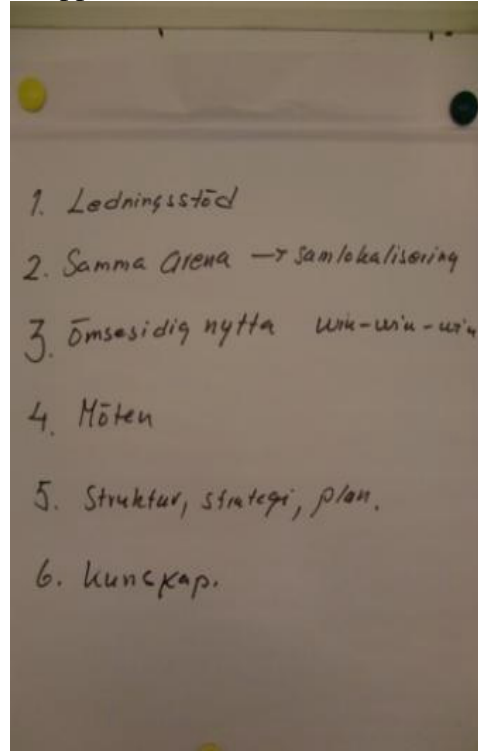 1. Ledningsstöd
2. Samma arena → samlokalisering
3. Ömsesidig nytta win-win-win
4. Möten
5. Struktur, strategi, plan.
6. Kunskap.